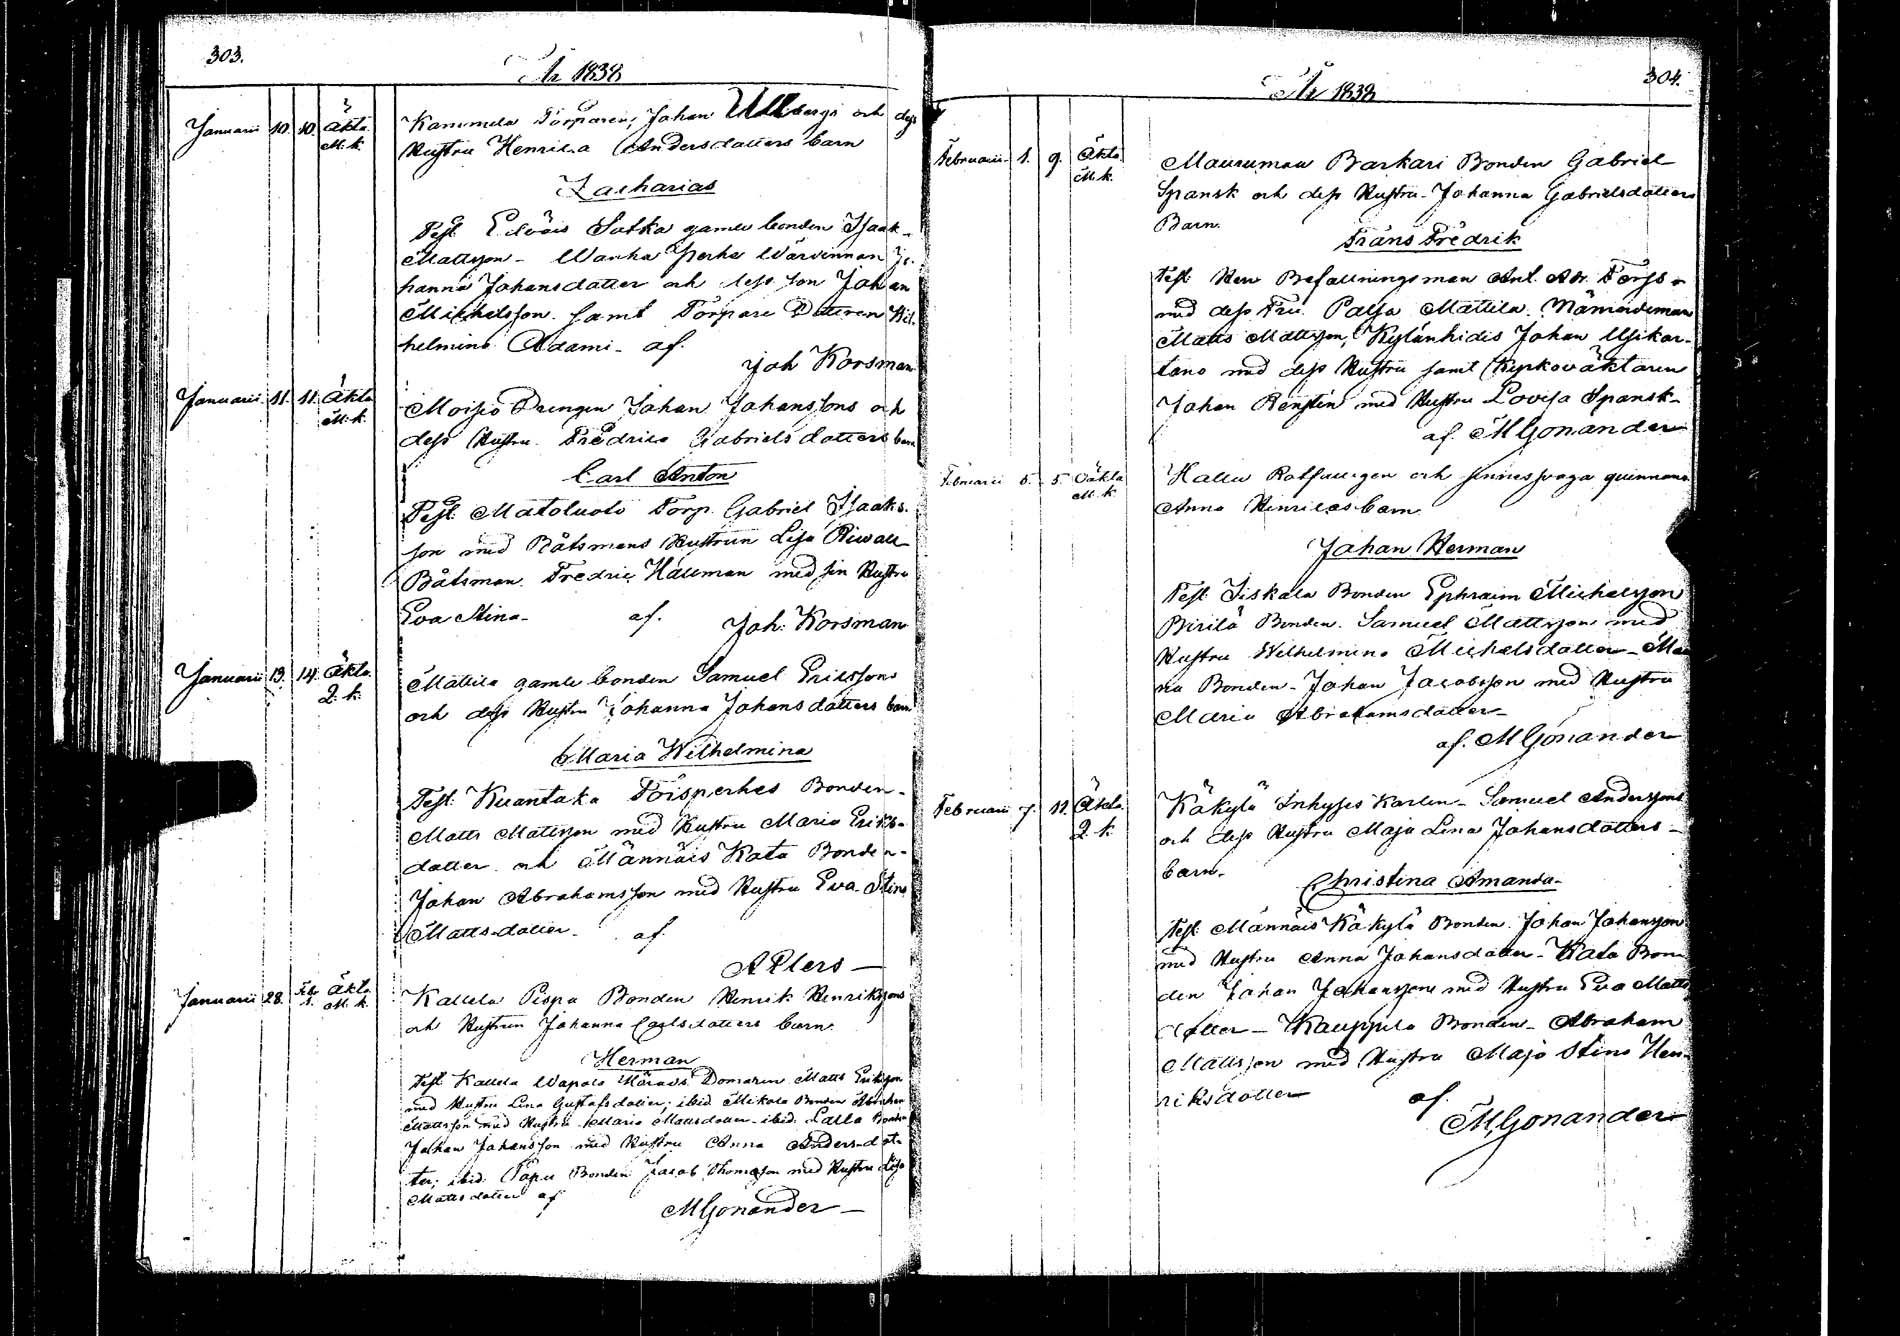 303.
År 1838
Januarii 10. 10. Äkta M. k.
Kammila Torparen, Johan Ullbergs och dess
Hustru Henrica Andersdotters barn
Zacharias
Test. Edväis Sutka gamle bonden Isaak
Mattsson - Wanha Yperhe Wärvinnan Jo-
hanna Johansdotter och dess son Johan
Michelsson. samt Torpare Dottren Wil-
helmina Adami - af.
Joh Korsman
Januarii 11. 11. Äkta M. k.
Moisio Drengen Johan Johanssons och
dess Hustru Fredrica Gabrielsdotters barn
Carl Anton
Test. Matoluoto Torp. Gabriel Isaaks-
son med Båtsmans Hustrun Lisa
Båtsman Fredric Hällman med sin Hustru
Eva Stina - af. Joh: Korsman
Januarii 13. 14. Äkta 2. k.
Mattila gamle bonden Samuel Ericssons
och dess Hustru Johanna Johansdotters barn
Maria Wilhelmina
Test. Kuantaka Töisperhes Bonden
Matts Mattsson med Hustru Maria Eriks-
dotter och Männäis Kata Bonden
Johan Abrahamsson med Hustru Eva Stina
Mattsdotter - af
A Plers
Januarii 28. Feb. 1. Äkta M. k.
Kallela Pispa Bonden Henrik Henrikssons
och Hustrun Johanna Carlsdotters barn.
Herman
Test. Kallela Wapalo Härads Domaren Matts Eriksson
med Hustru Lina Gustafsdotter; ibid. Mikola Bonden Abraham
Mattsson med Hustru Maria Mattsdotter - ibid. Lalla Bonden
Johan Johansson med Hustru Anna Andersdot-
ter; ibid. Papu Bonden Jacob Thomsson med Hustru Lisa
Mattsdotter af
MGonander
304.
År 1838
Februarii 1. 9. Äkta M. k.
Maurumaa Barkari Bonden Gabriel
Spansk och dess Hustru Johanna Gabrielsdotters
Barn.
Frans Fredrik
Test. Herr Befallningsman Ant. Forss
med dess Fru. Palsa Mattila Nämndeman
Matts Mattsson, Kylänhidis Johan Usikar-
tano med dess Hustru samt Kyrkoväktaren
Johan Renstén med Hustru Lovisa Spansk
af. MGonander
Februarii 5. 5. Oäkta M. k.
Hallu Rotfauigen och sinnessvaga quinnans
Anna Henricas barn
Johan Herman
Test. Iiskala Bonden Ephraim Michelsson
Birilä Bonden. Samuel Mattsson med
Hustru Wilhelmina Michelsdotter -
na Bonden - Johan Jacobsson med Hustru
Maria Abrahamsdotter -
af. MGonander
Februarii 7. 11. Äkta. 2. k.
Käkylä Inhyses Karlen - Samuel Anderssons
och dess Hustru Maja Lena Johansdotters
barn.
Christina Amanda
Test. Männäis Käkylä Bonden Johan Johansson
med Hustru Anna Johansdotter - Kata Bon-
den Johan Johansson med Hustru Eva Matts
dotter - Kauppila Bonden - Abraham
Mattsson med Hustru Maja Stina Hen-
riksdotter af
MGonander